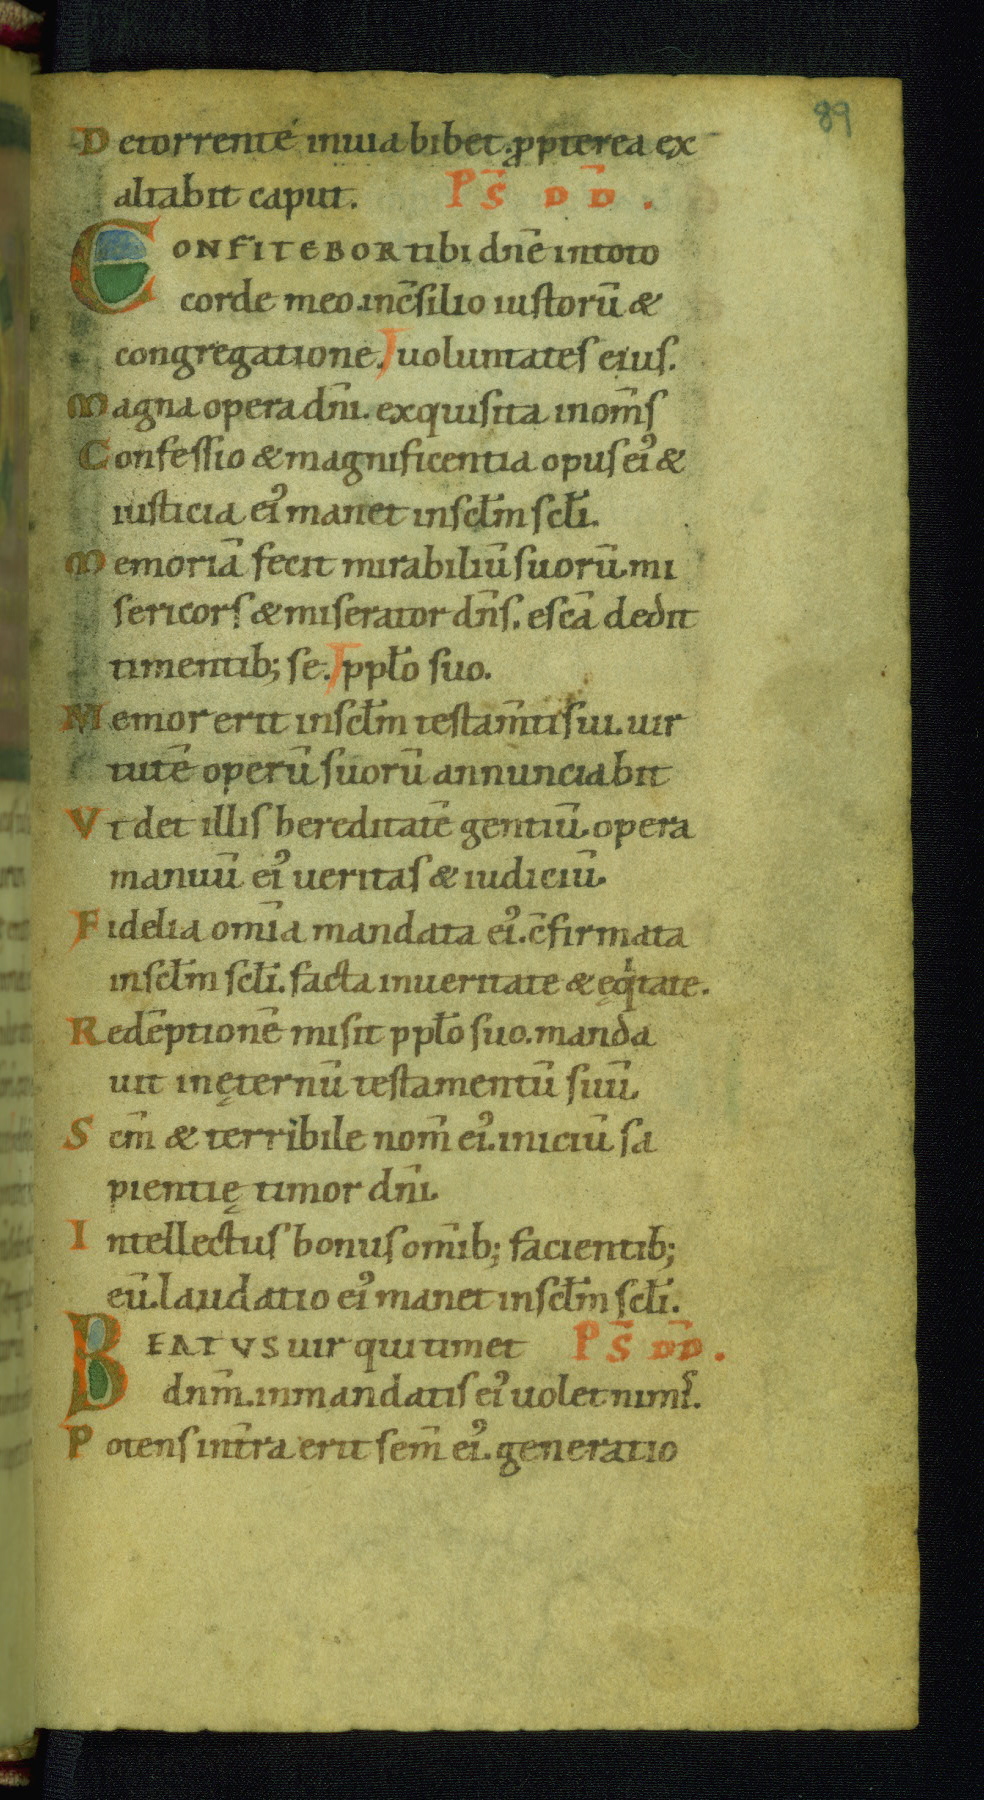 89
Detorrente inuia bibet. ꝓpterea ex
altabit caput. PS̄ DD̄.
CONFITEBOR tibi dn̄e intoto
corde meo. inc̄silio iustorū &
congregatione. uoluntates eius.
Magna opera dn̄i. exquisita inom̄s
Confessio & magnificentia opus eiꝰ &
iusticia eiꝰ manet inscl̄m scl̄i.
Memoriā fecit mirabiliū suorū. mi
sericors & miserator dn̄s. escā dedit
timentib; se. ppl̄o suo.
Memor erit inscl̄m testam̄ti sui. uir
tutē operū suorū annunciabit
Vt det illis hereditatē gentiū. opera
manuū eiꝰ ueritas & iudiciū.
Fidelia om̄ia mandata eiꝰ. c̄firmata
inscl̄m scl̄i. facta inueritate & ęqͥtate.
Redēptionē misit ppl̄o suo. manda
uit inęternū testamentū suū.
Scm̄ & terribile nom̄ eiꝰ. iniciū sa
pientię timor dn̄i.
Intellectus bonus om̄ib; facientib;
eū. laudatio eiꝰ manet inscl̄m scl̄i.
BEATVS uir qui timet PS̄ DD̄.
dn̄m. inmandatis eiꝰ uolet nimˢ.
Potens int̄ra erit sem̄ eiꝰ. generatio